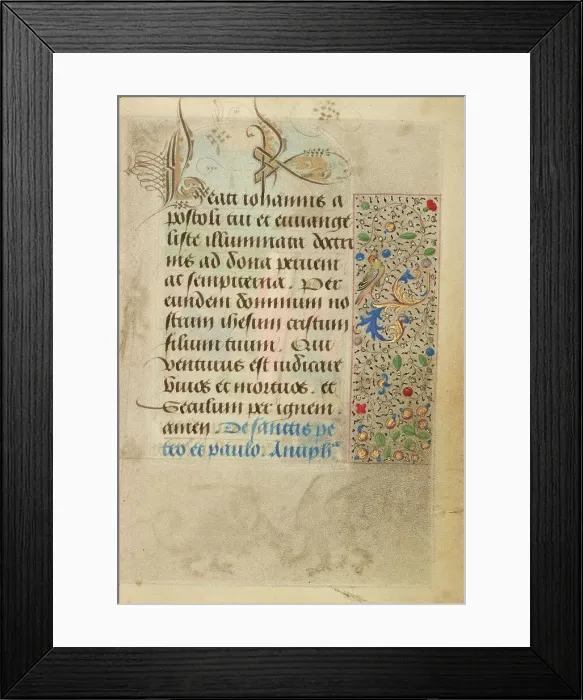 Beati iohannis a
postoli tui et euuange
liste illuminati doctri
nis ad dona perueni
at sempiterna. Per
eundem dominum no
strum ihesum cristum
filium tuum. Qui
venturus est iudicare
viuos et mortuos. et
Seculum per ignem.
amen. De sanctis pe
tro et paulo. Antiph